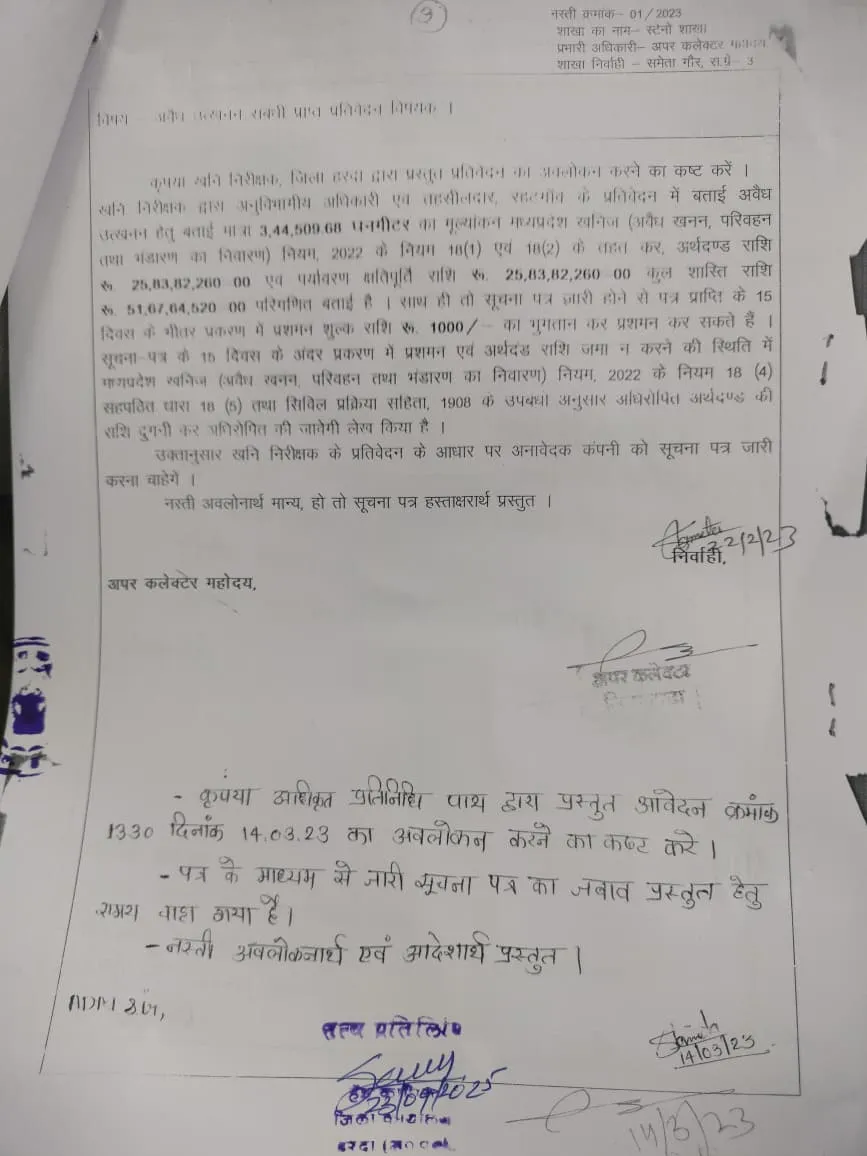 3
नस्ती क्रमांक– 01/2023
शाखा का नाम– स्टेनो शाखा
प्रभारी अधिकारी– अपर कलेक्टर महोदय
शाखा निर्वाही – समेता गौर, स.ग्रे– 3
विषय – अवैध उत्खनन संबधी प्राप्त प्रतिवेदन विषयक ।
कृपया खनि निरीक्षक, जिला हरदा द्वारा प्रस्तुत प्रतिवेदन का अवलोकन करने का कष्ट करें ।
खनि निरीक्षक द्वारा अनुविभागीय अधिकारी एवं तहसीलदार, रहटगॉव के प्रतिवेदन में बताई अवैध
उत्खनन हेतु बताई मात्रा 3,44,509.68 घनमीटर का मूल्यांकन मध्यप्रदेश खनिज (अवैध खनन, परिवहन
तथा भंडारण का निवारण) नियम, 2022 के नियम 18(1) एवं 18(2) के तहत कर, अर्थदण्ड राशि
रू. 25,83,82,260 00 एवं पर्यावरण क्षतिपूर्ति राशि रू. 25,83,82,260 00 कुल शास्ति राशि
रू. 51,67,64,520 00 परिगणित बताई है । साथ ही तो सूचना पत्र जारी होने से पत्र प्राप्ति के 15
दिवस के भीतर प्रकरण में प्रशमन शुल्क राशि रू. 1000/– का भुगतान कर प्रशमन कर सकते हैं ।
सूचना–पत्र के 15 दिवस के अंदर प्रकरण में प्रशमन एवं अर्थदंड राशि जमा न करने की स्थिति में
मध्यप्रदेश खनिज (अवैध खनन, परिवहन तथा भंडारण का निवारण) नियम, 2022 के नियम 18 (4)
सहपठित धारा 18 (5) तथा सिविल प्रक्रिया सहिता, 1908 के उपबंधा अनुसार अधिरोपित अर्थदण्ड की
राशि दुगनी कर अधिरोपित की जावेगी लेख किया है ।
उक्तानुसार खनि निरीक्षक के प्रतिवेदन के आधार पर अनावेदक कंपनी को सूचना पत्र जारी
करना चाहेगें ।
नस्ती अवलोनार्थ मान्य, हो तो सूचना पत्र हस्ताक्षरार्थ प्रस्तुत ।
22/2/23
निर्वाही,
अपर कलेक्टर महोदय,
अपर कलेक्टर
- कृपया अधिकृत प्रतिनिधि पाथ द्वारा प्रस्तुत आवेदन क्रमांक
1330 दिनांक 14.03.23 का अवलोकन करने का कष्ट करे ।
- पत्र के माध्यम से जारी सूचना पत्र का जवाव प्रस्तुत हेतु
समय चाहा गया है ।
- नस्ती अवलोकनार्थ एवं आदेशार्थ प्रस्तुत ।
ADM
सत्य प्रतिलिपि
14/03/23
23/09/2025
14/3/23
हरदा